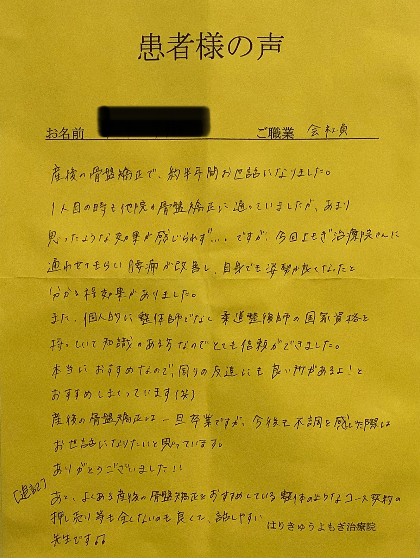 患者様の声
お名前 ご職業 会社員
産後の骨盤矯正で、約半年間お世話になりました。
1人目の時も他院の骨盤矯正に通っていましたが、あまり
思ったような効果が感じられず…。ですが、今回よもぎ治療院さんに
通わせてもらい腰痛が改善し、自身でも姿勢が良くなったと
分かる程効果がありました。
また、個人的に整体師でなく柔道整復師の国家資格を
持っていて知識のある方なのでとても信頼ができました。
本当におすすめなので、周りの友達にも良い所があるよ!と
おすすめしまくっています(笑)
産後の骨盤矯正は一旦卒業ですが、今後も不調を感じた際は
お世話になりたいと思っています。
ありがとうございました!!
[追記]
あと、よくある産後の骨盤矯正をおすすめしている整体のようなコース契約の
押し売り等も全くないのも良くて、話しやすい
先生です
はりきゅうよもぎ治療院